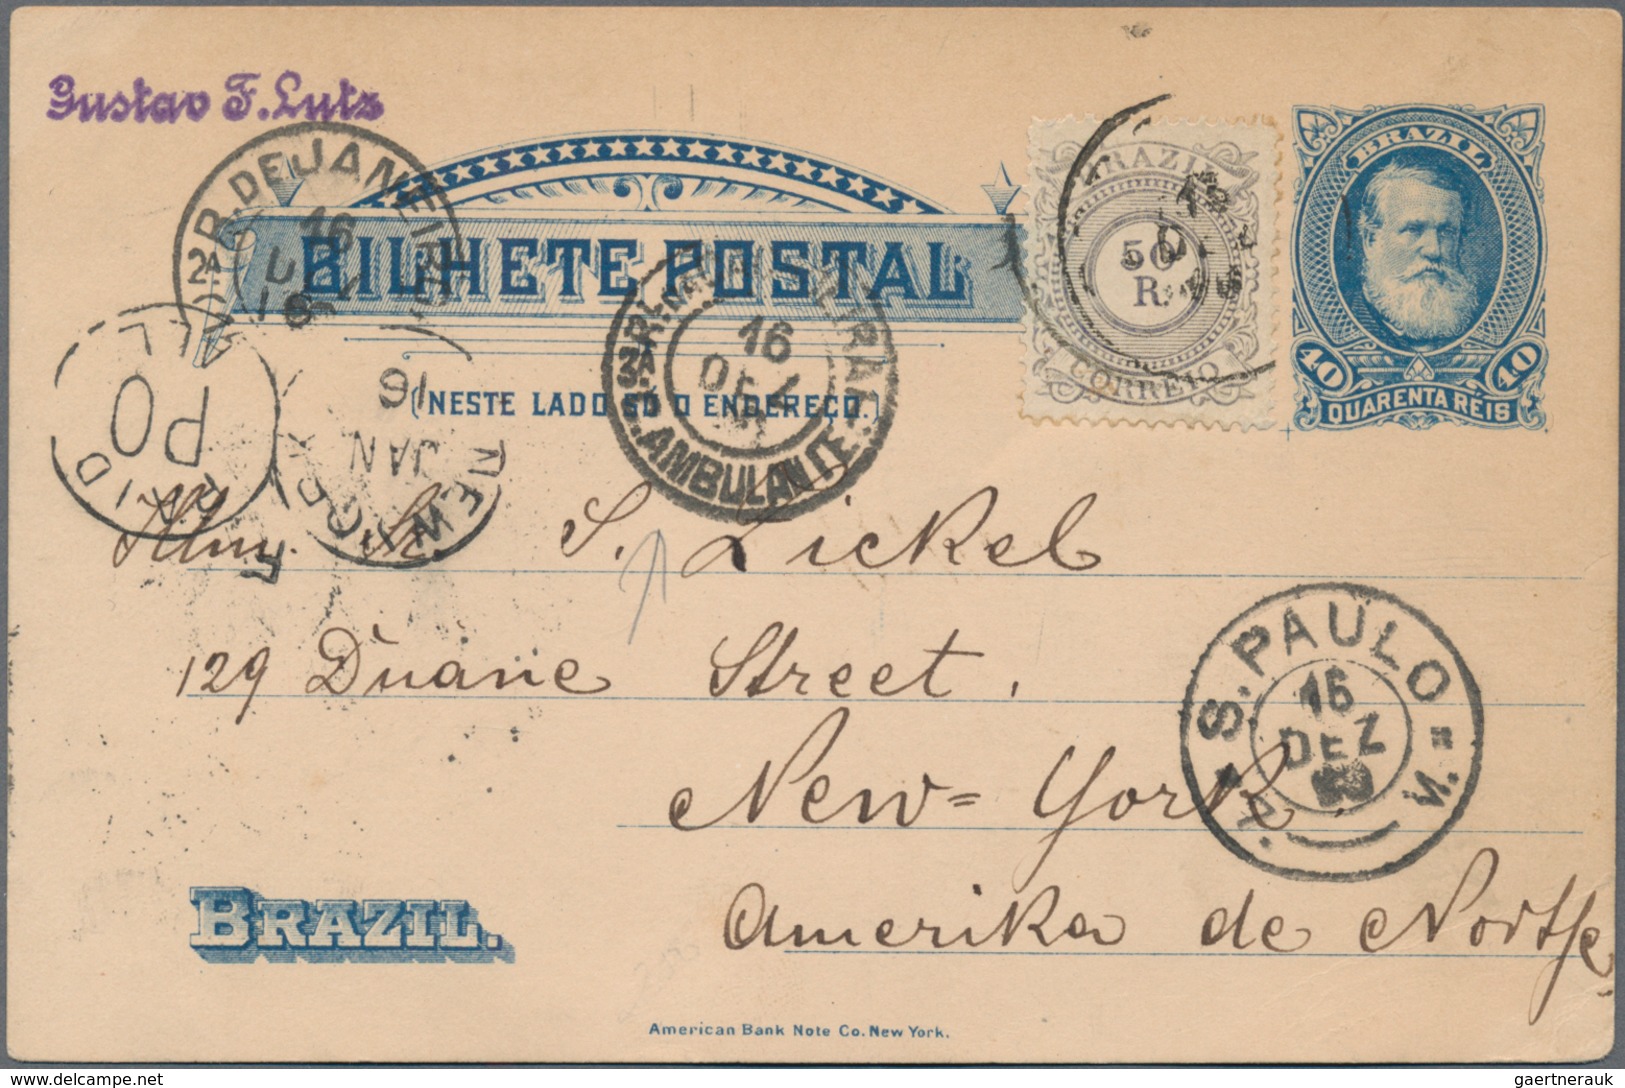 Gustav F. Lutz
R. DE JANEIRO
2A
16
BILHETE POSTAL
(NESTE LADO SÓ O ENDEREÇO.)
BRAZIL
50
R.
CORREIO
BRAZIL
40 40
QUARENTA RÉIS
3A
16
DEZ
AMBULANTE
PAID
ALL
NEW YORK
16
JAN
Illmo. Sr. S. Lickel
129 Duane Street.
New=York
Amerika de Norte
S. PAULO
16
DEZ
BRAZIL.
American Bank Note Co. New York.
gaertnerauk